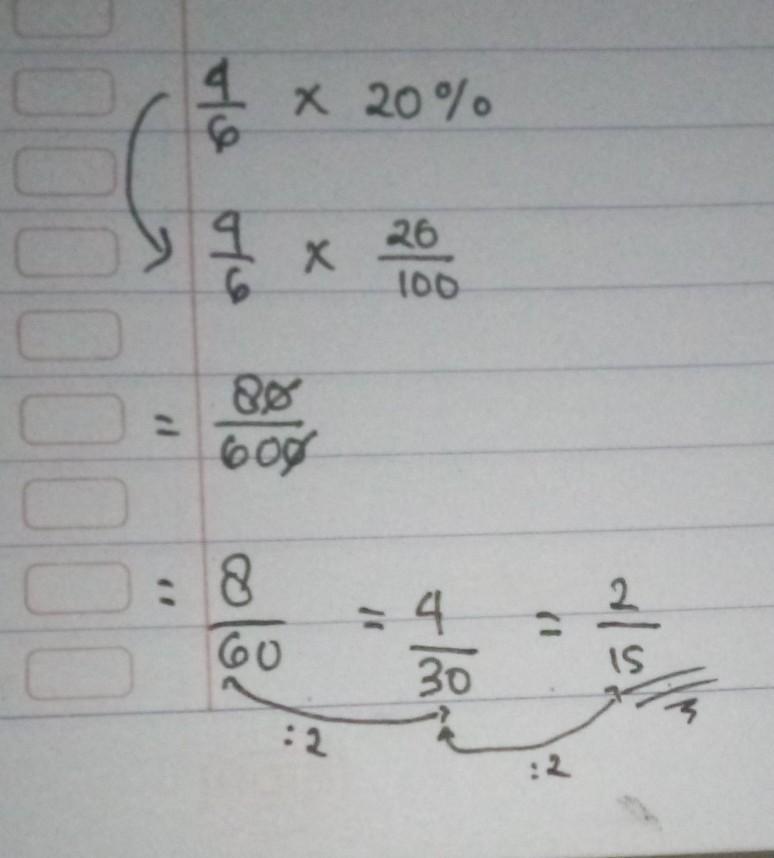 4/6 × 20%
4/6 × 20/100
= 80/600
= 8/60 = 4/30 = 2/15
:2 :2